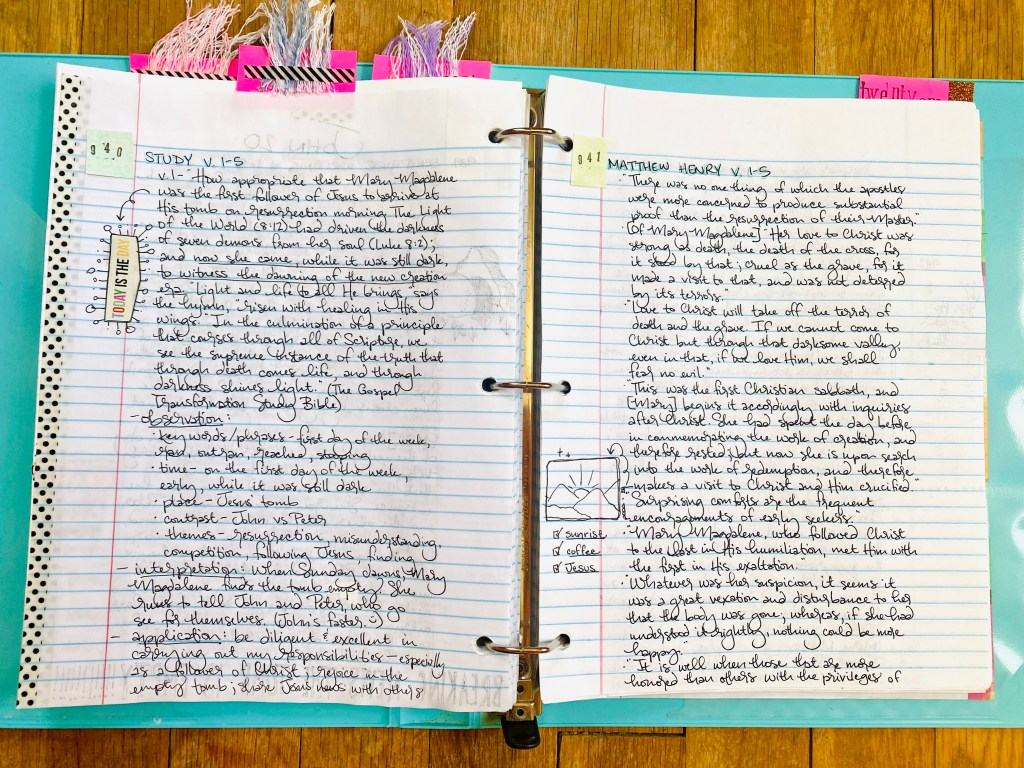 twenty one
940
STUDY V. 1-5
v.1- "How appropriate that Mary Magdalene
was the first follower of Jesus to arrive at
His tomb on resurrection morning. The Light
of the World (8:12) had driven the darkness
of seven demons from her soul (Luke 8:2);
and now she came, while it was still dark,
to witness the dawning of the new creation
era. "Light and life to all He brings," says
the hymn, "risen with healing in His
wings." In the culmination of a principle
that courses through all of Scripture, we
see the supreme instance of the truth that
through death comes life, and through
darkness shines light." (The Gospel
Transformation Study Bible)
TODAY IS THE DAY
- observation:
· key words/phrases - first day of the week,
ran, outran, reached, stooping
· time - on the first day of the week,
early, while it was still dark
· place - Jesus' tomb
· contrast - John vs Peter
· themes - resurrection, misunderstanding,
competition, following Jesus, finding
- interpretation: When Sunday dawns, Mary
Magdalene finds the tomb empty. She
runs to tell John and Peter, who go
see for themselves. (John's faster. :))
- application: be diligent & excellent in
carrying out my responsibilities - especially
as a follower of Christ; rejoice in the
empty tomb; share Jesus' news with others
941
MATTHEW HENRY V. 1-5
· "There was no one thing of which the apostles
were more concerned to produce substantial
proof than the resurrection of their Master."
· [Of Mary Magdalene] "Her love to Christ was
strong as death, the death of the cross, for
it stood by that; cruel as the grave, for it
made a visit to that, and was not deterred
by its terrors.
· "Love to Christ will take off the terror of
death and the grave. If we cannot come to
Christ but through that darksome valley,
even in that, if we love Him, we shall
fear no evil."
· "This was the first Christian sabbath, and
[Mary] begins it accordingly with inquiries
after Christ. She had spent the day before
in commemorating the work of creation, and
therefore rested; but now she is upon search
into the work of redemption, and therefore
makes a visit to Christ and Him crucified."
· "Surprising comforts are the frequent
encouragements of early seekers."
· "Mary Magdalene, who followed Christ
to the last in His humiliation, met Him with
the first in His exaltation."
· "Whatever was her suspicion, it seems it
was a great vexation and disturbance to her
that the body was gone; whereas, if she had
understood it rightly, nothing could be more
happy."
· "It is well when those that are more
honored than others with the privileges of
☑ sunrise
☑ coffee
☑ Jesus